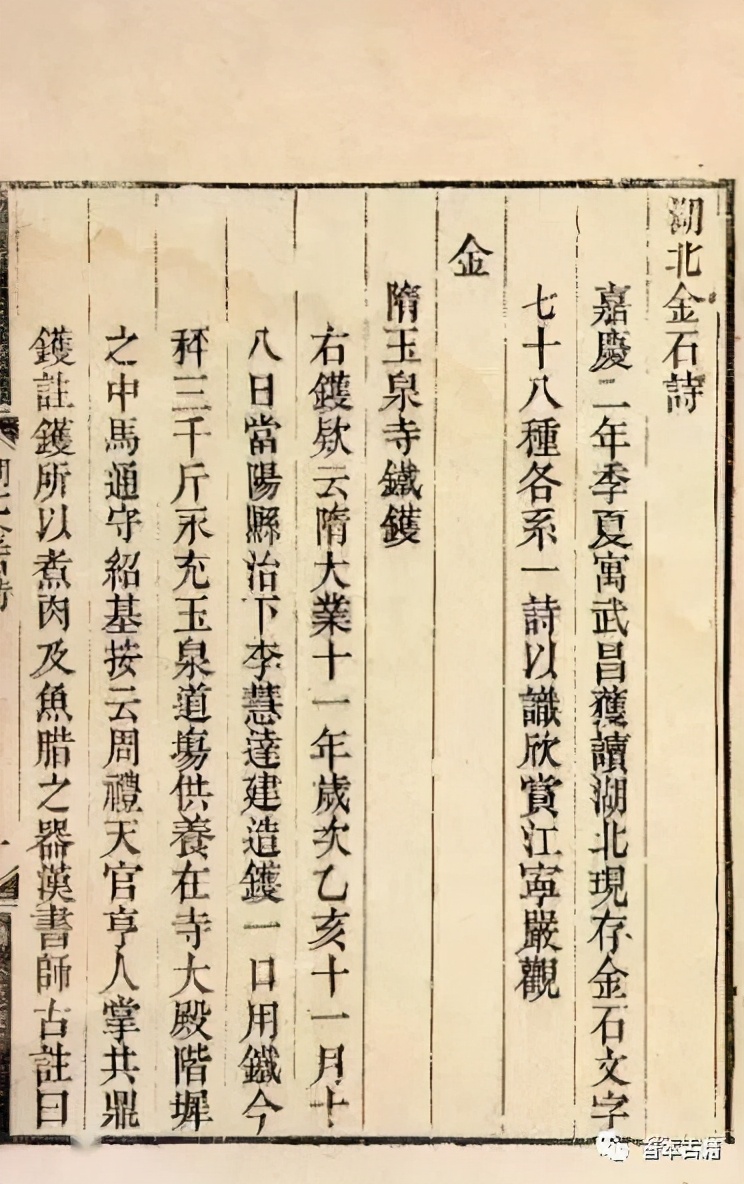 湖北金石詩
嘉慶二年季夏寓武昌獲讀湖北現存金石文字
七十八種各系一詩以識欣賞江寧嚴觀
金
隋玉泉寺鐵鑊
右鑊欵云隋大業十一年歲次乙亥十一月十
八日當陽縣治下李慧達建造鑊一口用鐵今
秤三千斤永充玉泉道塲供養在寺大殿階墀
之中馬通守紹基按云周禮天官亨人掌共鼎
鑊註鑊所以煮肉及魚腊之器漢書師古註曰